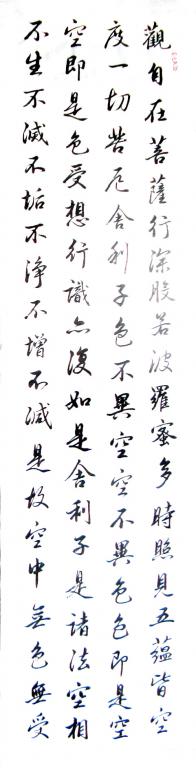 觀自在菩薩行深般若波羅蜜多時照見五蘊皆空
度一切苦厄舍利子色不異空空不異色色即是空
空即是色受想行識亦復如是舍利子是諸法空相
不生不滅不垢不淨不增不減是故空中無色無受